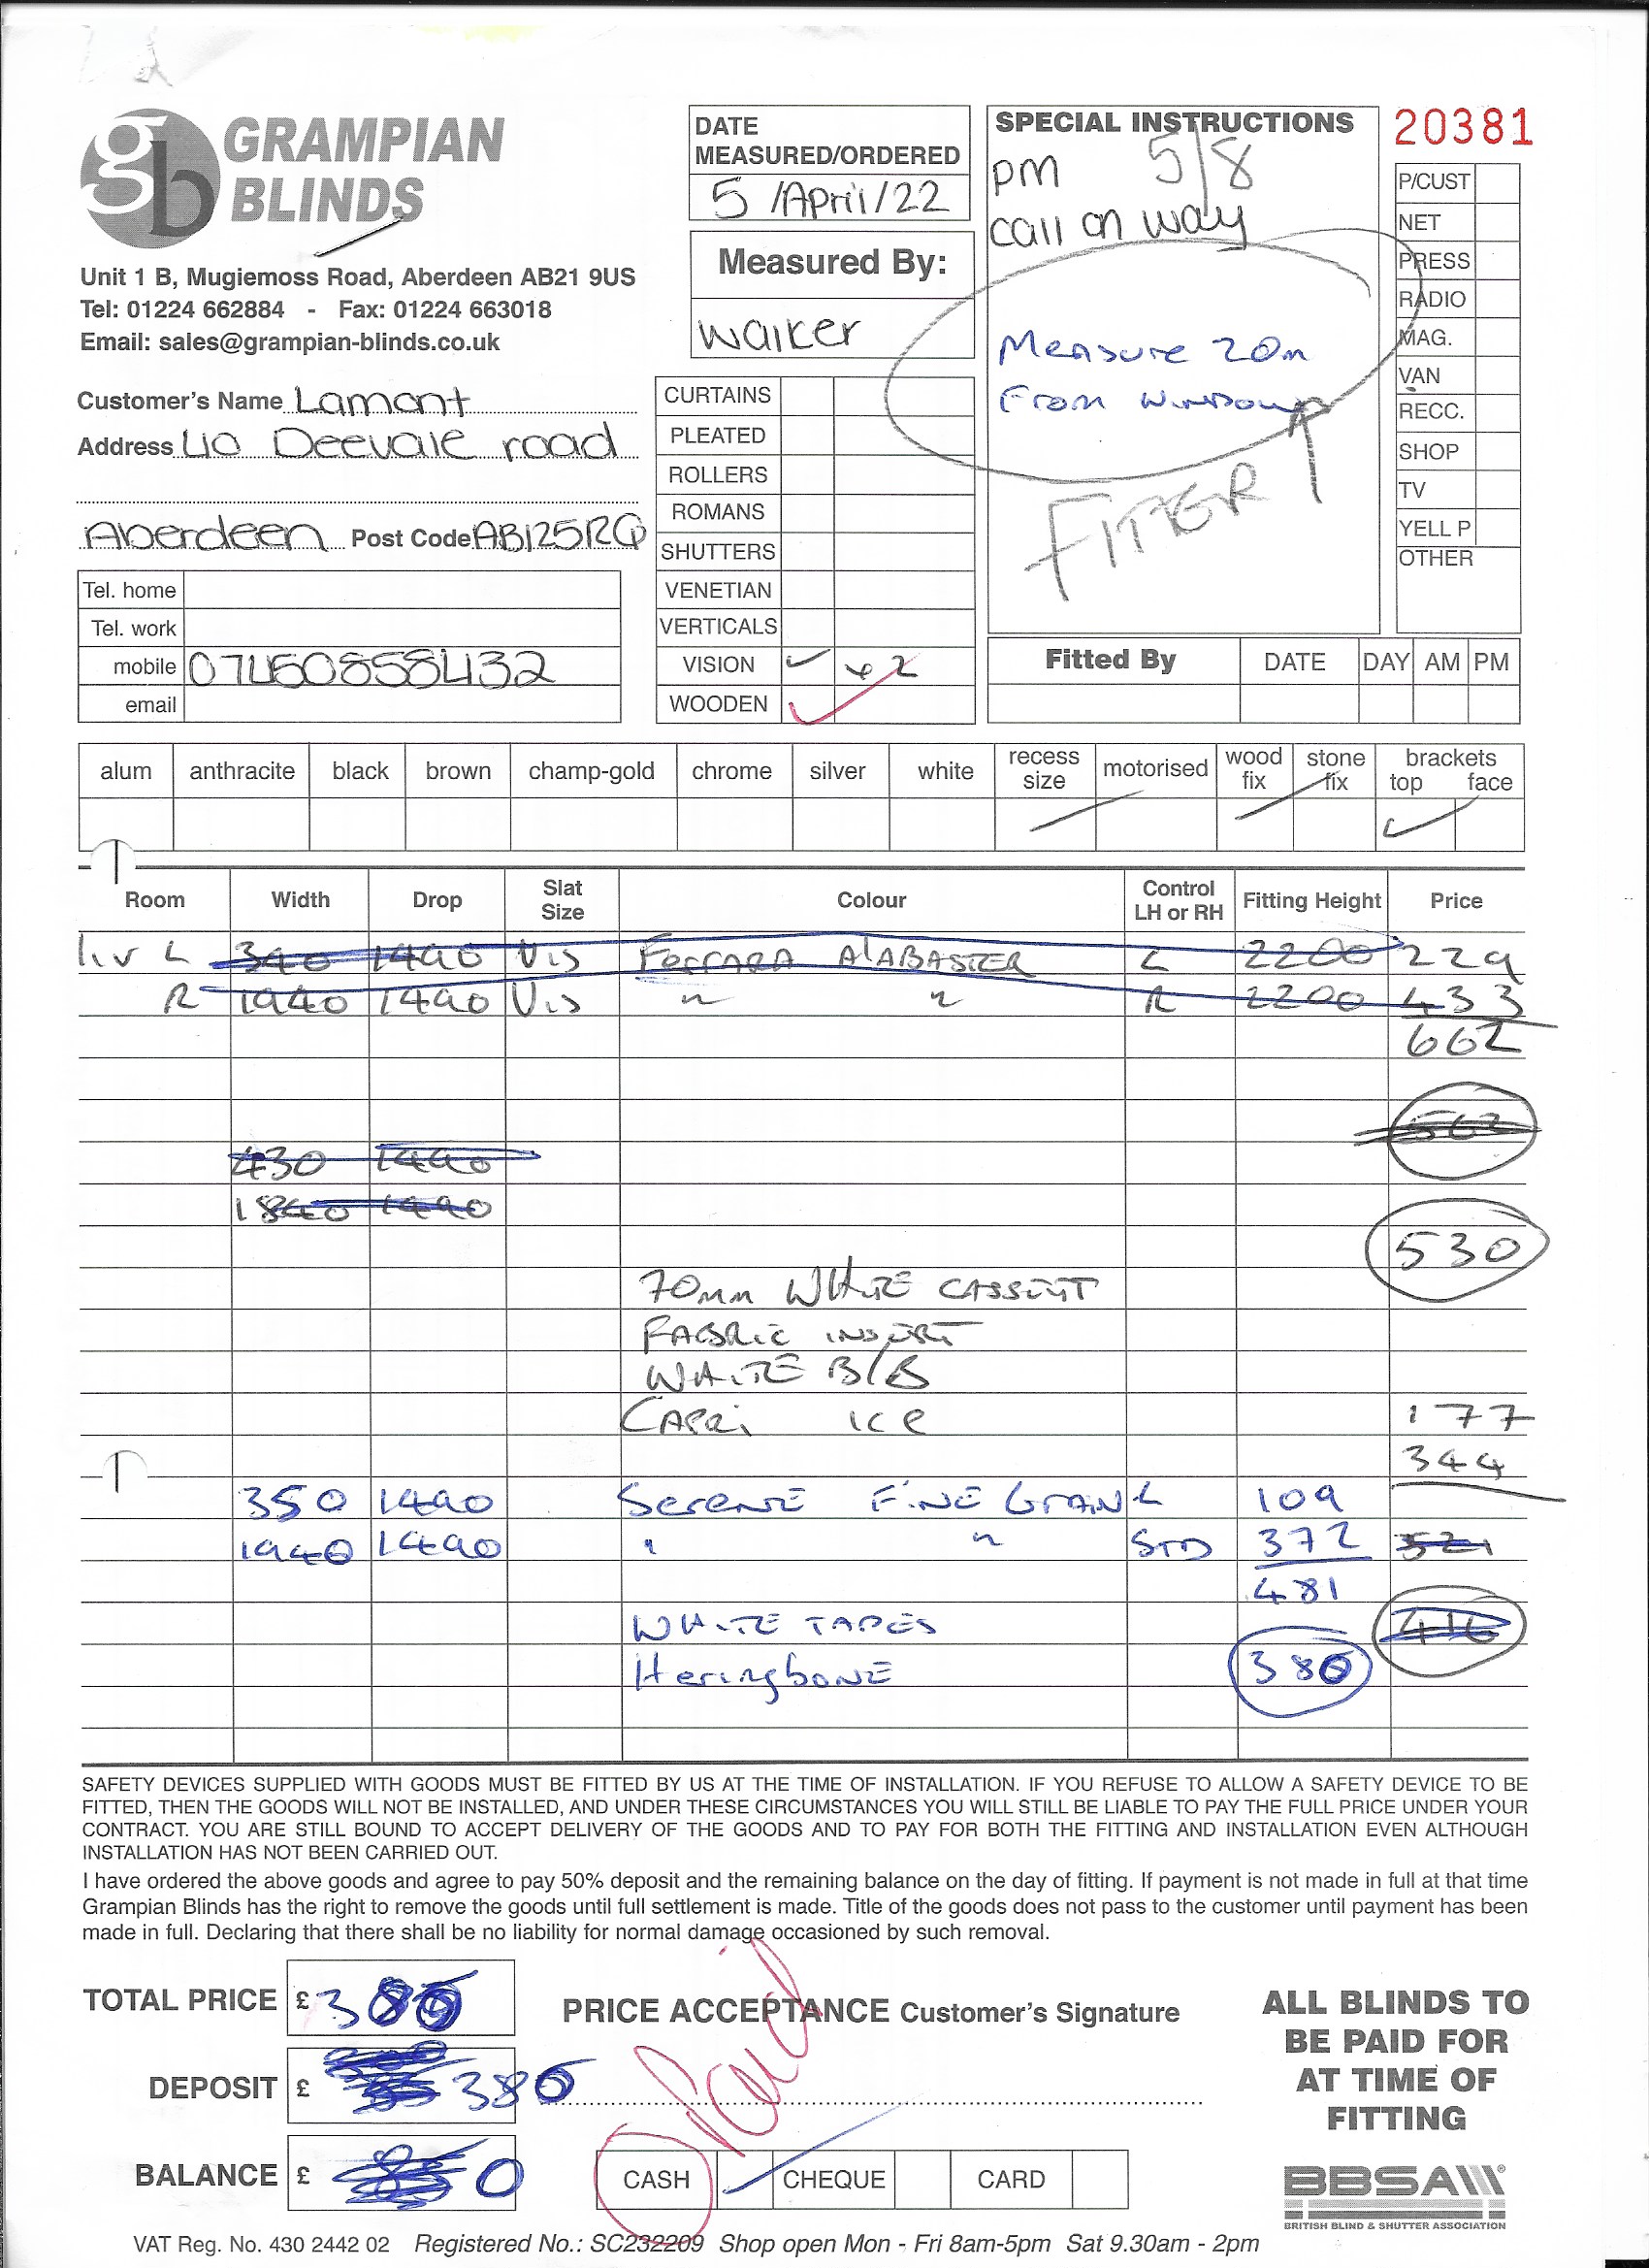 GRAMPIAN
BLINDS
Unit 1 B, Mugiemoss Road, Aberdeen AB21 9US
Tel: 01224 662884 - Fax: 01224 663018
Email: sales@grampian-blinds.co.uk
Customer's Name Lamont
Address 40 Deevale road
Aberdeen Post Code AB125RQ
Tel. home
Tel. work
mobile 07460858432
email
DATE
MEASURED/ORDERED
5 /April/22
Measured By:
walker
CURTAINS
PLEATED
ROLLERS
ROMANS
SHUTTERS
VENETIAN
VERTICALS
VISION ✓ x2
WOODEN ✓
SPECIAL INSTRUCTIONS
pm 5/8
call on way
Measure 20m
From Window
FITTER
20381
P/CUST
NET
PRESS
RADIO
MAG.
VAN
RECC.
SHOP
TV
YELL P
OTHER
Fitted By DATE DAY AM PM
alum anthracite black brown champ-gold chrome silver white recess size motorised wood fix stone fix brackets top face
Room Width Drop Slat Size Colour Control LH or RH Fitting Height Price
liv L 340 1490 Vis Ferrara ALABASTER L 2200 229
R 1940 1490 Vis " " R 2200 433
662
562
430 1490
1840 1490
530
70mm WHITE CASSETT
FABRIC INSERT
WHITE B/B
CAPRI ICE 177
344
350 1490 Serene FINE GRAIN L 109
1940 1490 " " STD 372 521
481
WHITE TAPES 416
Heringbone 386
SAFETY DEVICES SUPPLIED WITH GOODS MUST BE FITTED BY US AT THE TIME OF INSTALLATION. IF YOU REFUSE TO ALLOW A SAFETY DEVICE TO BE
FITTED, THEN THE GOODS WILL NOT BE INSTALLED, AND UNDER THESE CIRCUMSTANCES YOU WILL STILL BE LIABLE TO PAY THE FULL PRICE UNDER YOUR
CONTRACT. YOU ARE STILL BOUND TO ACCEPT DELIVERY OF THE GOODS AND TO PAY FOR BOTH THE FITTING AND INSTALLATION EVEN ALTHOUGH
INSTALLATION HAS NOT BEEN CARRIED OUT.
I have ordered the above goods and agree to pay 50% deposit and the remaining balance on the day of fitting. If payment is not made in full at that time
Grampian Blinds has the right to remove the goods until full settlement is made. Title of the goods does not pass to the customer until payment has been
made in full. Declaring that there shall be no liability for normal damage occasioned by such removal.
TOTAL PRICE £ 386
DEPOSIT £ 386
BALANCE £ 0
PRICE ACCEPTANCE Customer's Signature
Paid
CASH ✓ CHEQUE CARD
ALL BLINDS TO
BE PAID FOR
AT TIME OF
FITTING
BBSA
BRITISH BLIND & SHUTTER ASSOCIATION
VAT Reg. No. 430 2442 02 Registered No.: SC232209 Shop open Mon - Fri 8am-5pm Sat 9.30am - 2pm